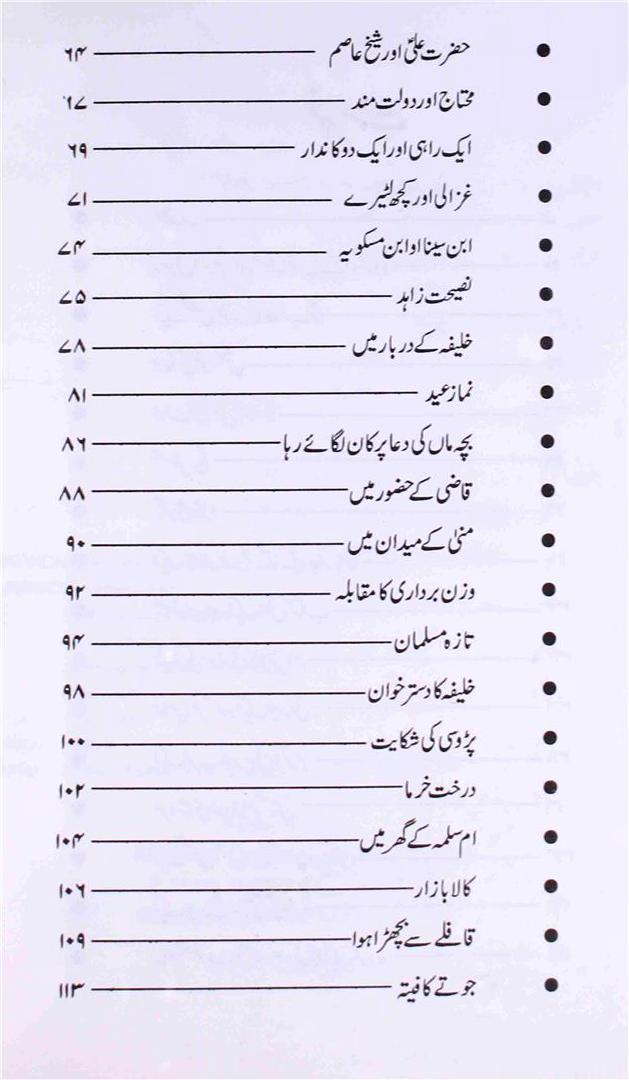 ● حضرت علیؑ اور شیخ عاصم ۶۴
● محتاج اور دولت مند ۶۷
● ایک راہی اور ایک دوکاندار ۶۹
● غزالی اور کچھ لٹیرے ۷۱
● ابن سینا او ابن مسکویہ ۷۴
● نصیحت زاہد ۷۵
● خلیفہ کے دربار میں ۷۸
● نماز عید ۸۱
● بچہ ماں کی دعا پر کان لگائے رہا ۸۶
● قاضی کے حضور میں ۸۸
● منیٰ کے میدان میں ۹۰
● وزن برداری کا مقابلہ ۹۲
● تازہ مسلمان ۹۴
● خلیفہ کا دسترخوان ۹۸
● پڑوسی کی شکایت ۱۰۰
● درخت خرما ۱۰۲
● ام سلمہ کے گھر میں ۱۰۴
● کالا بازار ۱۰۶
● قافلے سے بچھڑا ہوا ۱۰۹
● جوتے کا فیتہ ۱۱۳